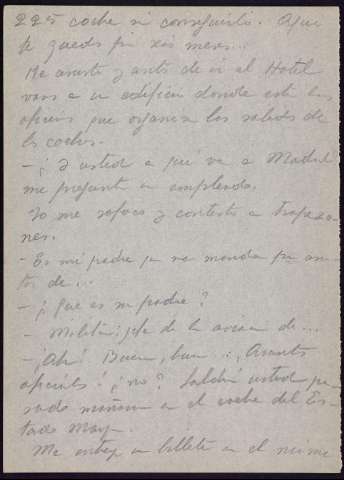 coche si conseguirlo. Aquí
te quedas fin
Me asusto y antes de ir al Hotel
vamos a un edificio donde está las
oficinas que organiza las salidas de
los coches.
- ¿Y usted a qué va a Madrid
me pregunta un empleado.
Yo me sofoco y contesto a trompico
nes.
- Es mi padre que me manda
de...
- ¿Que es su padre?
- Militar; jefe de la de...
- ¡Ah! Bueno, bueno... ¿Asuntos
oficiales? ¿no? Saldrá usted pa
sado mañana en el coche del Es
tado Mayor.
Me entrega un billete en el